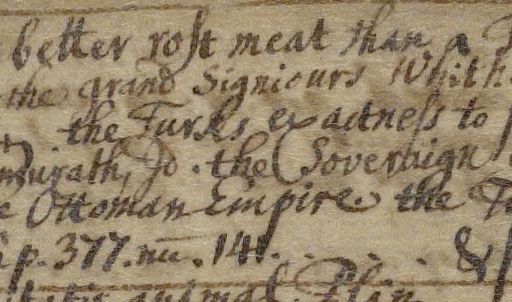 better rost meat than a
the grand Signiours Whith
the Turks exactness to
murath, Jo. the Soveraign
Ottoman Empire. the T
p. 377. nu. 141.
animal. Plin